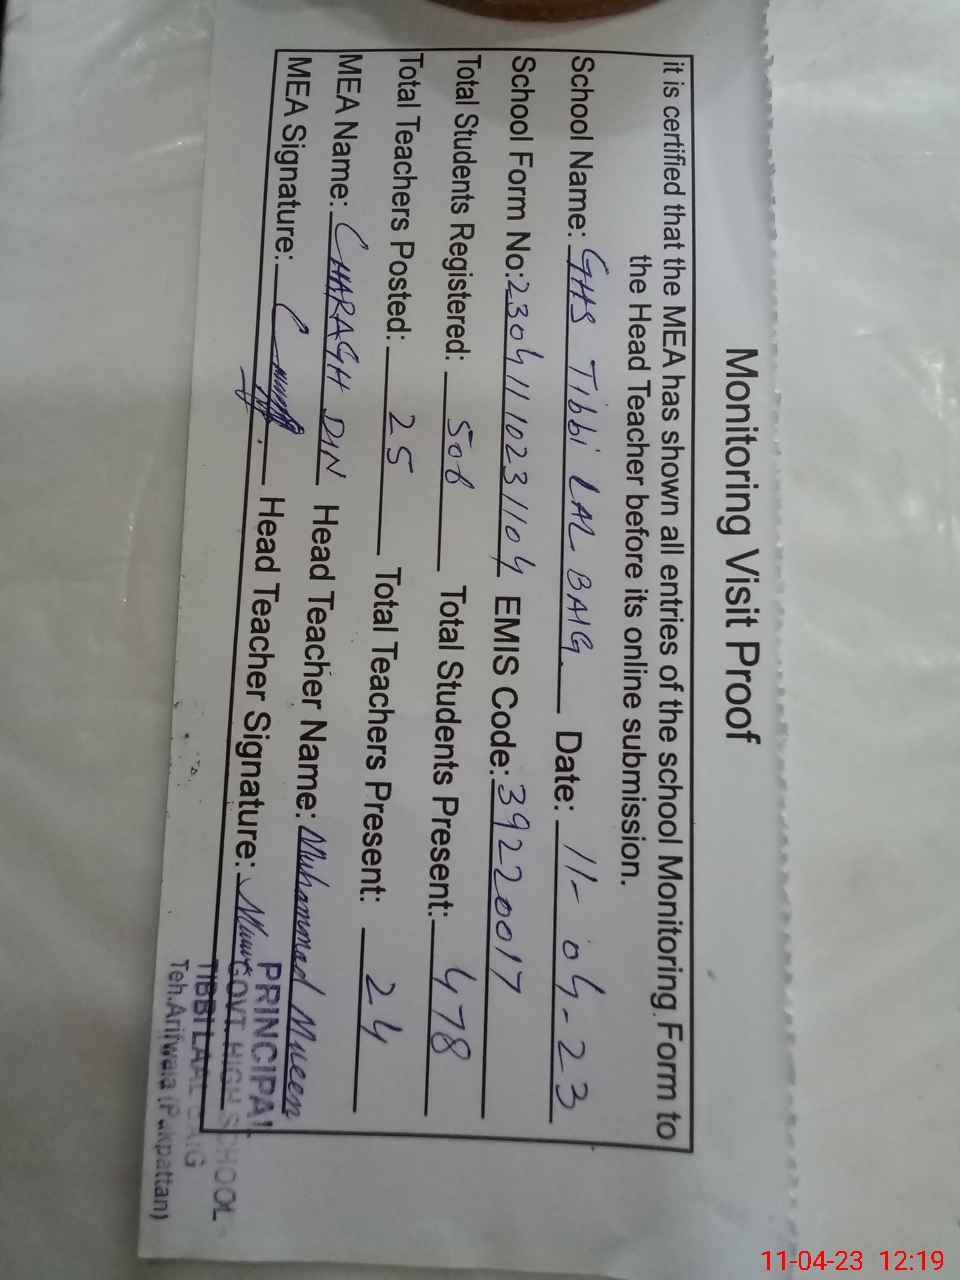 Monitoring Visit Proof
it is certified that the MEA has shown all entries of the school Monitoring Form to
the Head Teacher before its online submission.
School Name: GHS Tibbi LAL BAIG Date: 11-04-23
School Form No: 23041110231104 EMIS Code: 39220017
Total Students Registered: 506 Total Students Present: 478
Total Teachers Posted: 25 Total Teachers Present: 24
MEA Name: CHARAGH DIN Head Teacher Name: Muhammad Mueen
MEA Signature: Head Teacher Signature:
PRINCIPAL
GOVT. HIGH SCHOOL
TIBBI LAAL BAIG
Teh.Arifwala (Pakpattan)
11-04-23 12:19